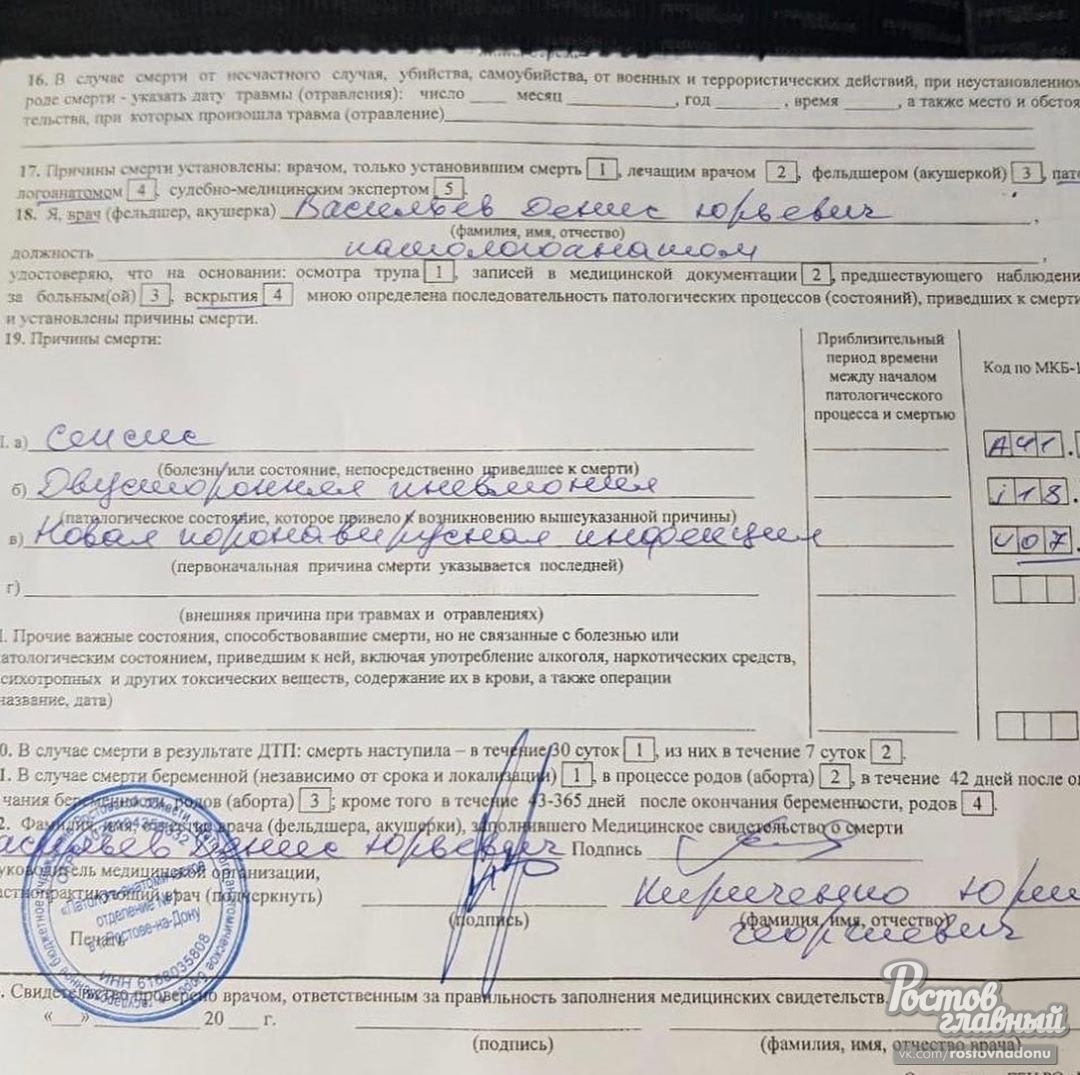 16. В случае смерти от несчастного случая, убийства, самоубийства, от военных и террористических действий, при неустановленном
роде смерти - указать дату травмы (отравления): число ____ месяц __________, год ______, время _____, а также место и обстоя
тельства, при которых произошла травма (отравление)
17. Причины смерти установлены: врачом, только установившим смерть 1, лечащим врачом 2, фельдшером (акушеркой) 3, пато
логоанатомом 4, судебно-медицинским экспертом 5.
18. Я, врач (фельдшер, акушерка) Васильев Денис Юрьевич,
(фамилия, имя, отчество)
должность патологоанатом,
удостоверяю, что на основании: осмотра трупа 1, записей в медицинской документации 2, предшествующего наблюдени
за больным(ой) 3, вскрытия 4 мною определена последовательность патологических процессов (состояний), приведших к смерти
и установлены причины смерти.
19. Причины смерти:
Приблизительный
период времени
между началом
патологического
процесса и смертью
Код по МКБ-1
I. а) Сепсис A41.
(болезнь или состояние, непосредственно приведшее к смерти)
б) Двусторонняя пневмония i18.
(патологическое состояние, которое привело к возникновению вышеуказанной причины)
в) Новая коронавирусная инфекция U07.
(первоначальная причина смерти указывается последней)
г)
(внешняя причина при травмах и отравлениях)
I. Прочие важные состояния, способствовавшие смерти, но не связанные с болезнью или
атологическим состоянием, приведшим к ней, включая употребление алкоголя, наркотических средств,
сихотропных и других токсических веществ, содержание их в крови, а также операции
название, дата)
0. В случае смерти в результате ДТП: смерть наступила – в течение 30 суток 1, из них в течение 7 суток 2.
1. В случае смерти беременной (независимо от срока и локализации) 1, в процессе родов (аборта) 2, в течение 42 дней после ок
чания беременности, родов (аборта) 3; кроме того в течение 43-365 дней после окончания беременности, родов 4.
2. Фамилия, имя, отчество врача (фельдшера, акушерки), заполнившего Медицинское свидетельство о смерти
асильев Денис Юрьевич Подпись
уководитель медицинской организации,
астнопрактикующий врач (подчеркнуть)
Кириченко Юри
(подпись) (фамилия, имя, отчество)
Георгиевич
Печать
«Патологоанатомическое
отделение №
в г. Ростове-на-Дону
ИНН 6168035808
. Свидетельство проверено врачом, ответственным за правильность заполнения медицинских свидетельств
«___» __________ 20 ___ г.
(подпись) (фамилия, имя, отчество врача)
Ростов
главный
vk.com/rostovnadonu